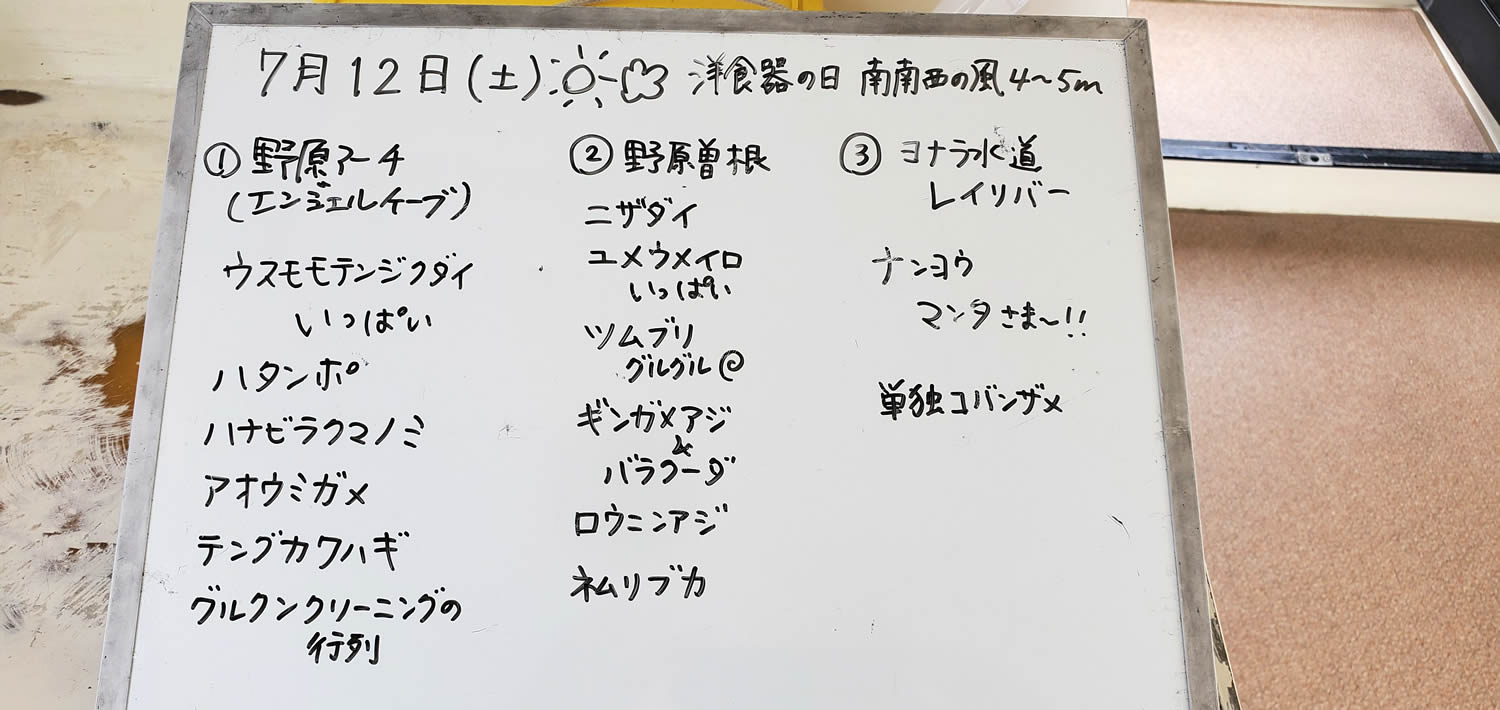 7月12日(土) 洋食器の日 南南西の風4〜5m
①野原アーチ
(エンジェルケーブ)
ウスモモテンジクダイ
いっぱい
ハタンポ
ハナビラクマノミ
アオウミガメ
テングカワハギ
グルクンクリーニングの
行列
②野原曽根
ニザダイ
ユメウメイロ
いっぱい
ツムブリ
グルグル@
ギンガメアジ
&
バラクーダ
ロウニンアジ
ネムリブカ
③ヨナラ水道
レイリバー
ナンヨウ
マンタさま〜!!
単独コバンザメ